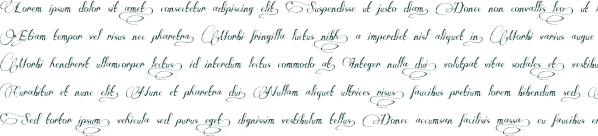 Lorem ipsum dolor sit amet consectetur adipiscing elit Suspendisse ut justo diam Donec non convallis leo ut
Etiam tempor vel risus nec pharetra Morbi fringilla luctus nibh a imperdiet nisl aliquet in Morbi varius augue
Morbi hendrerit ullamcorper lectus id interdum lectus commodo at Integer nulla dui volutpat vitae sodales et
Curabitur et nunc elit Nunc et pharetra dui Nullam aliquet ultrices risus faucibus pretium lorem bibendum sed
Sed tortor ipsum vehicula sed purus eget dignissim vestibulum tellus Donec accumsan facilisis massa eu faucibus